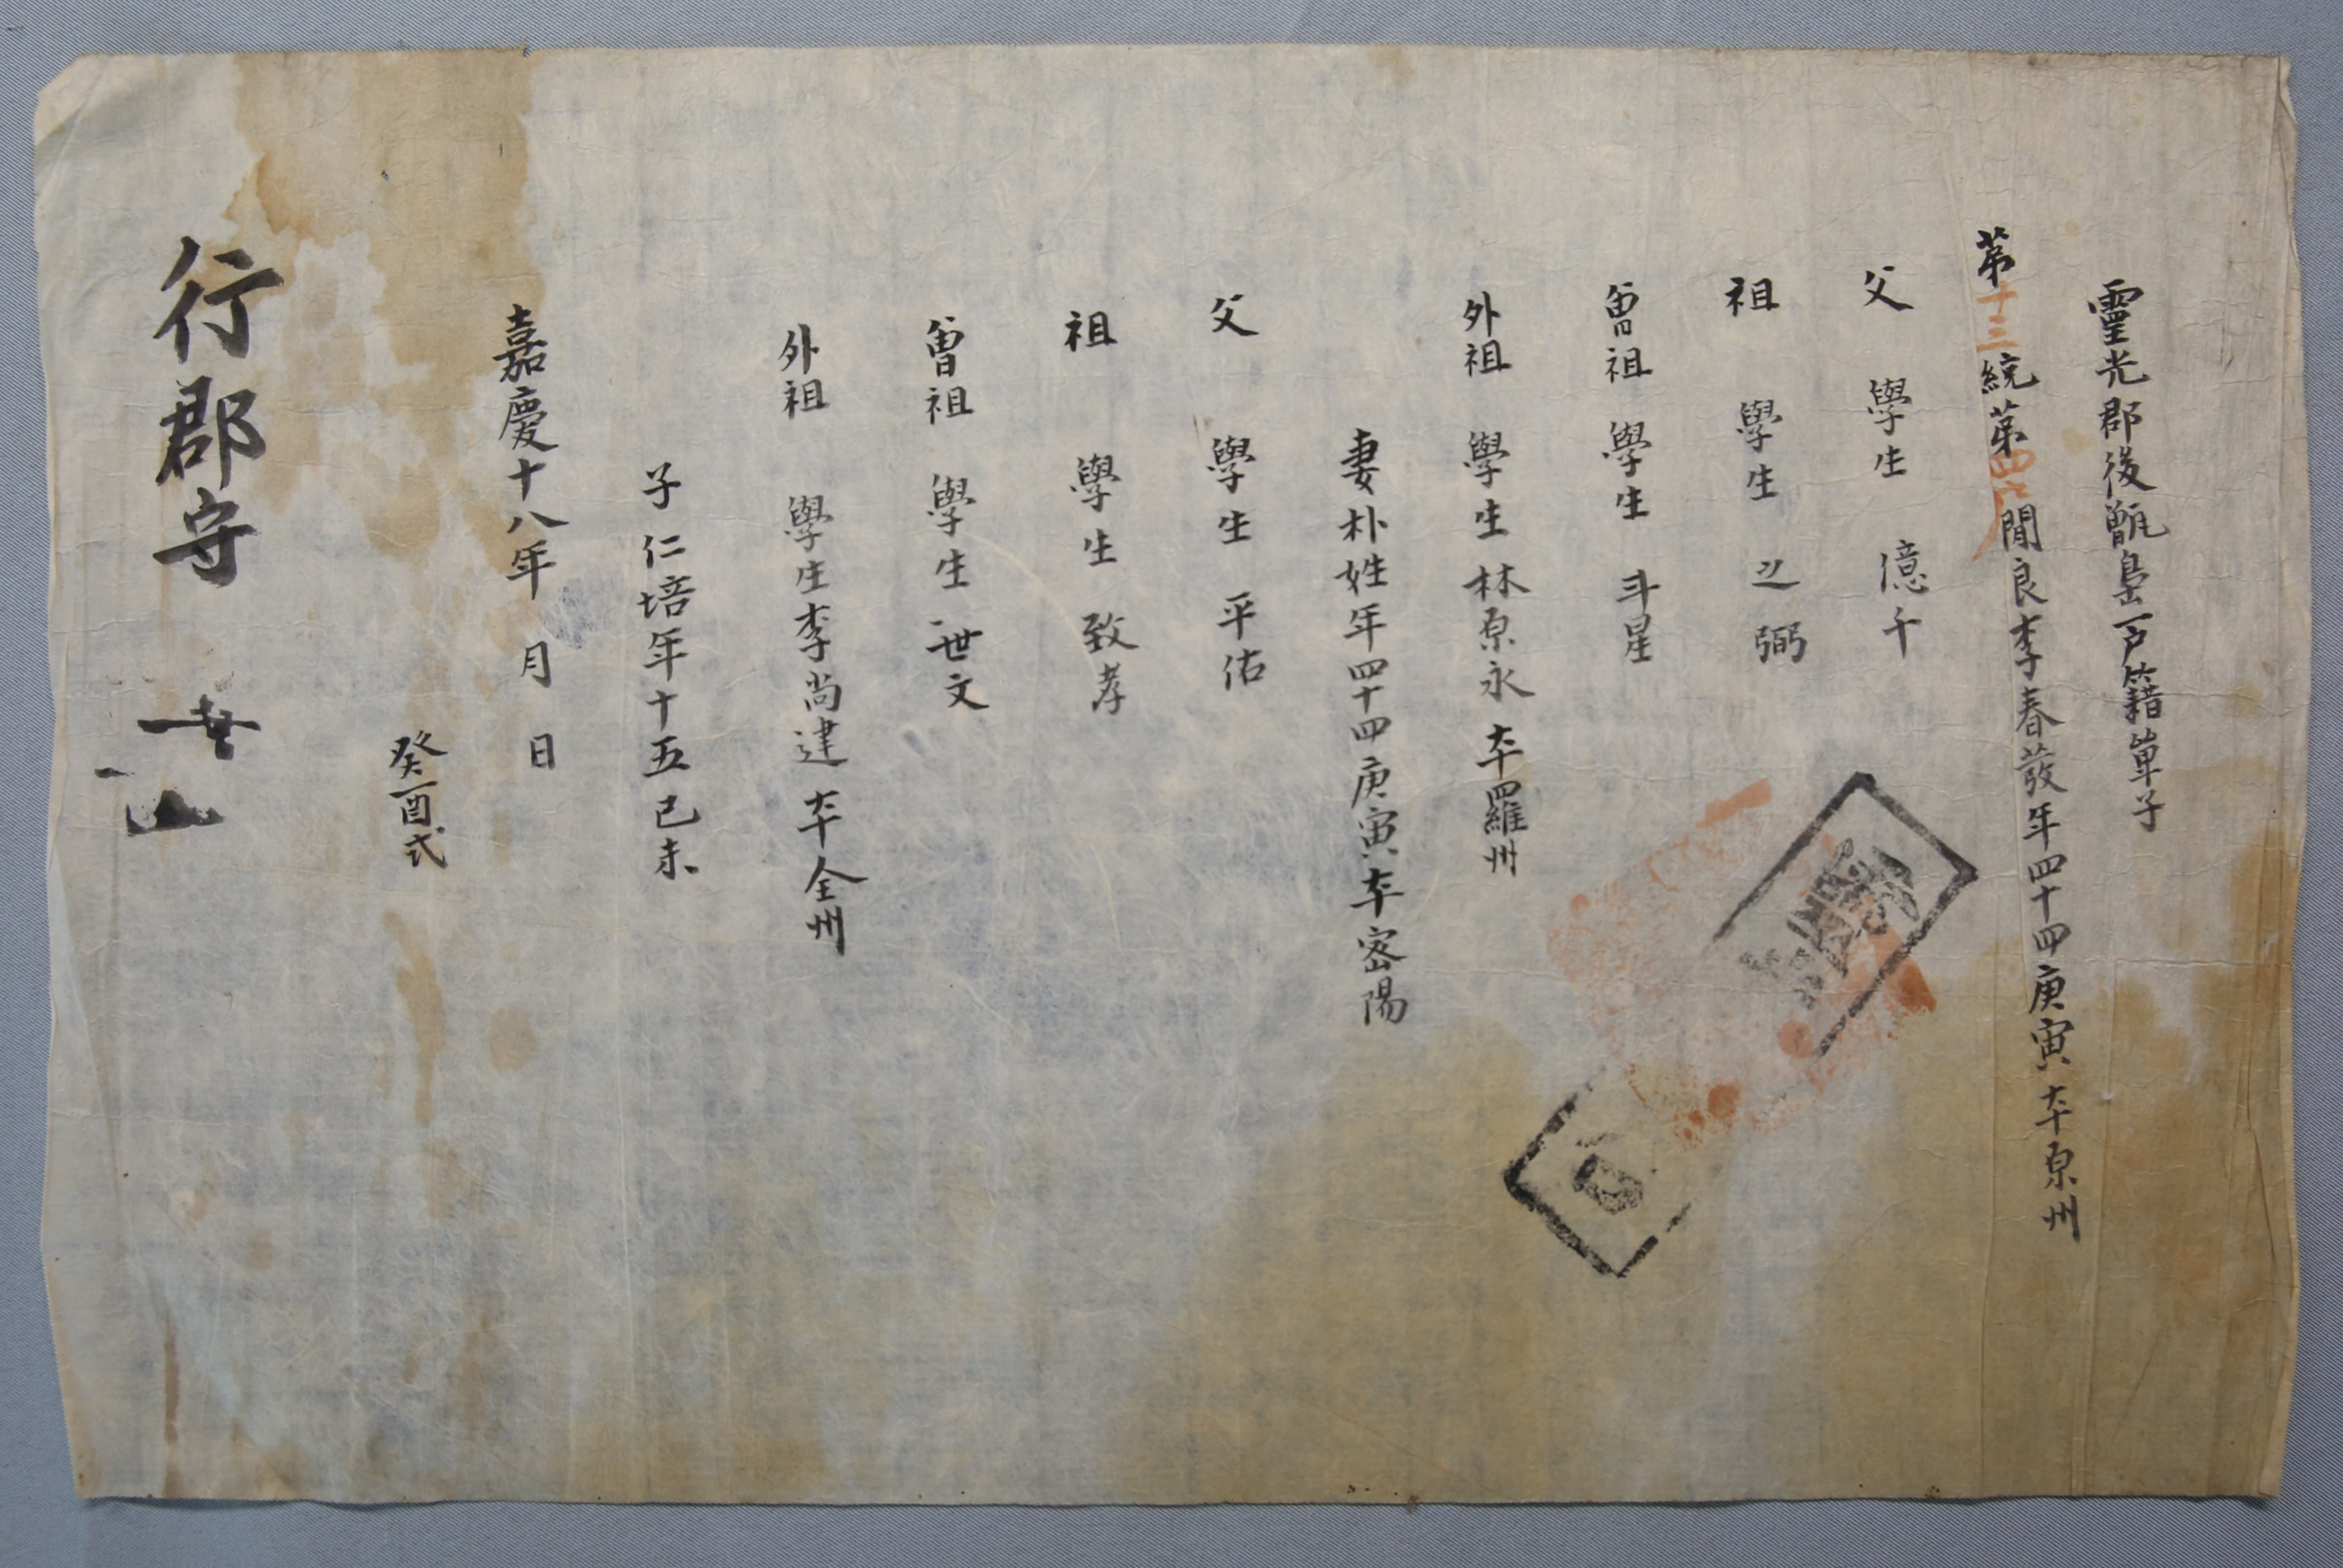 靈光郡後甑島戶籍單子
第十三統第四戶閒良李春發年四十四庚寅本原州
父 學生 億千
祖 學生 之弼
曾祖 學生 斗星
外祖 學生 林原永 本羅州
妻朴姓年四十四庚寅本密陽
父 學生 平佑
祖 學生 致孝
曾祖 學生 世文
外祖 學生 李尚建 本全州
子仁培年十五己未
嘉慶十八年 月 日
癸酉式
行郡守